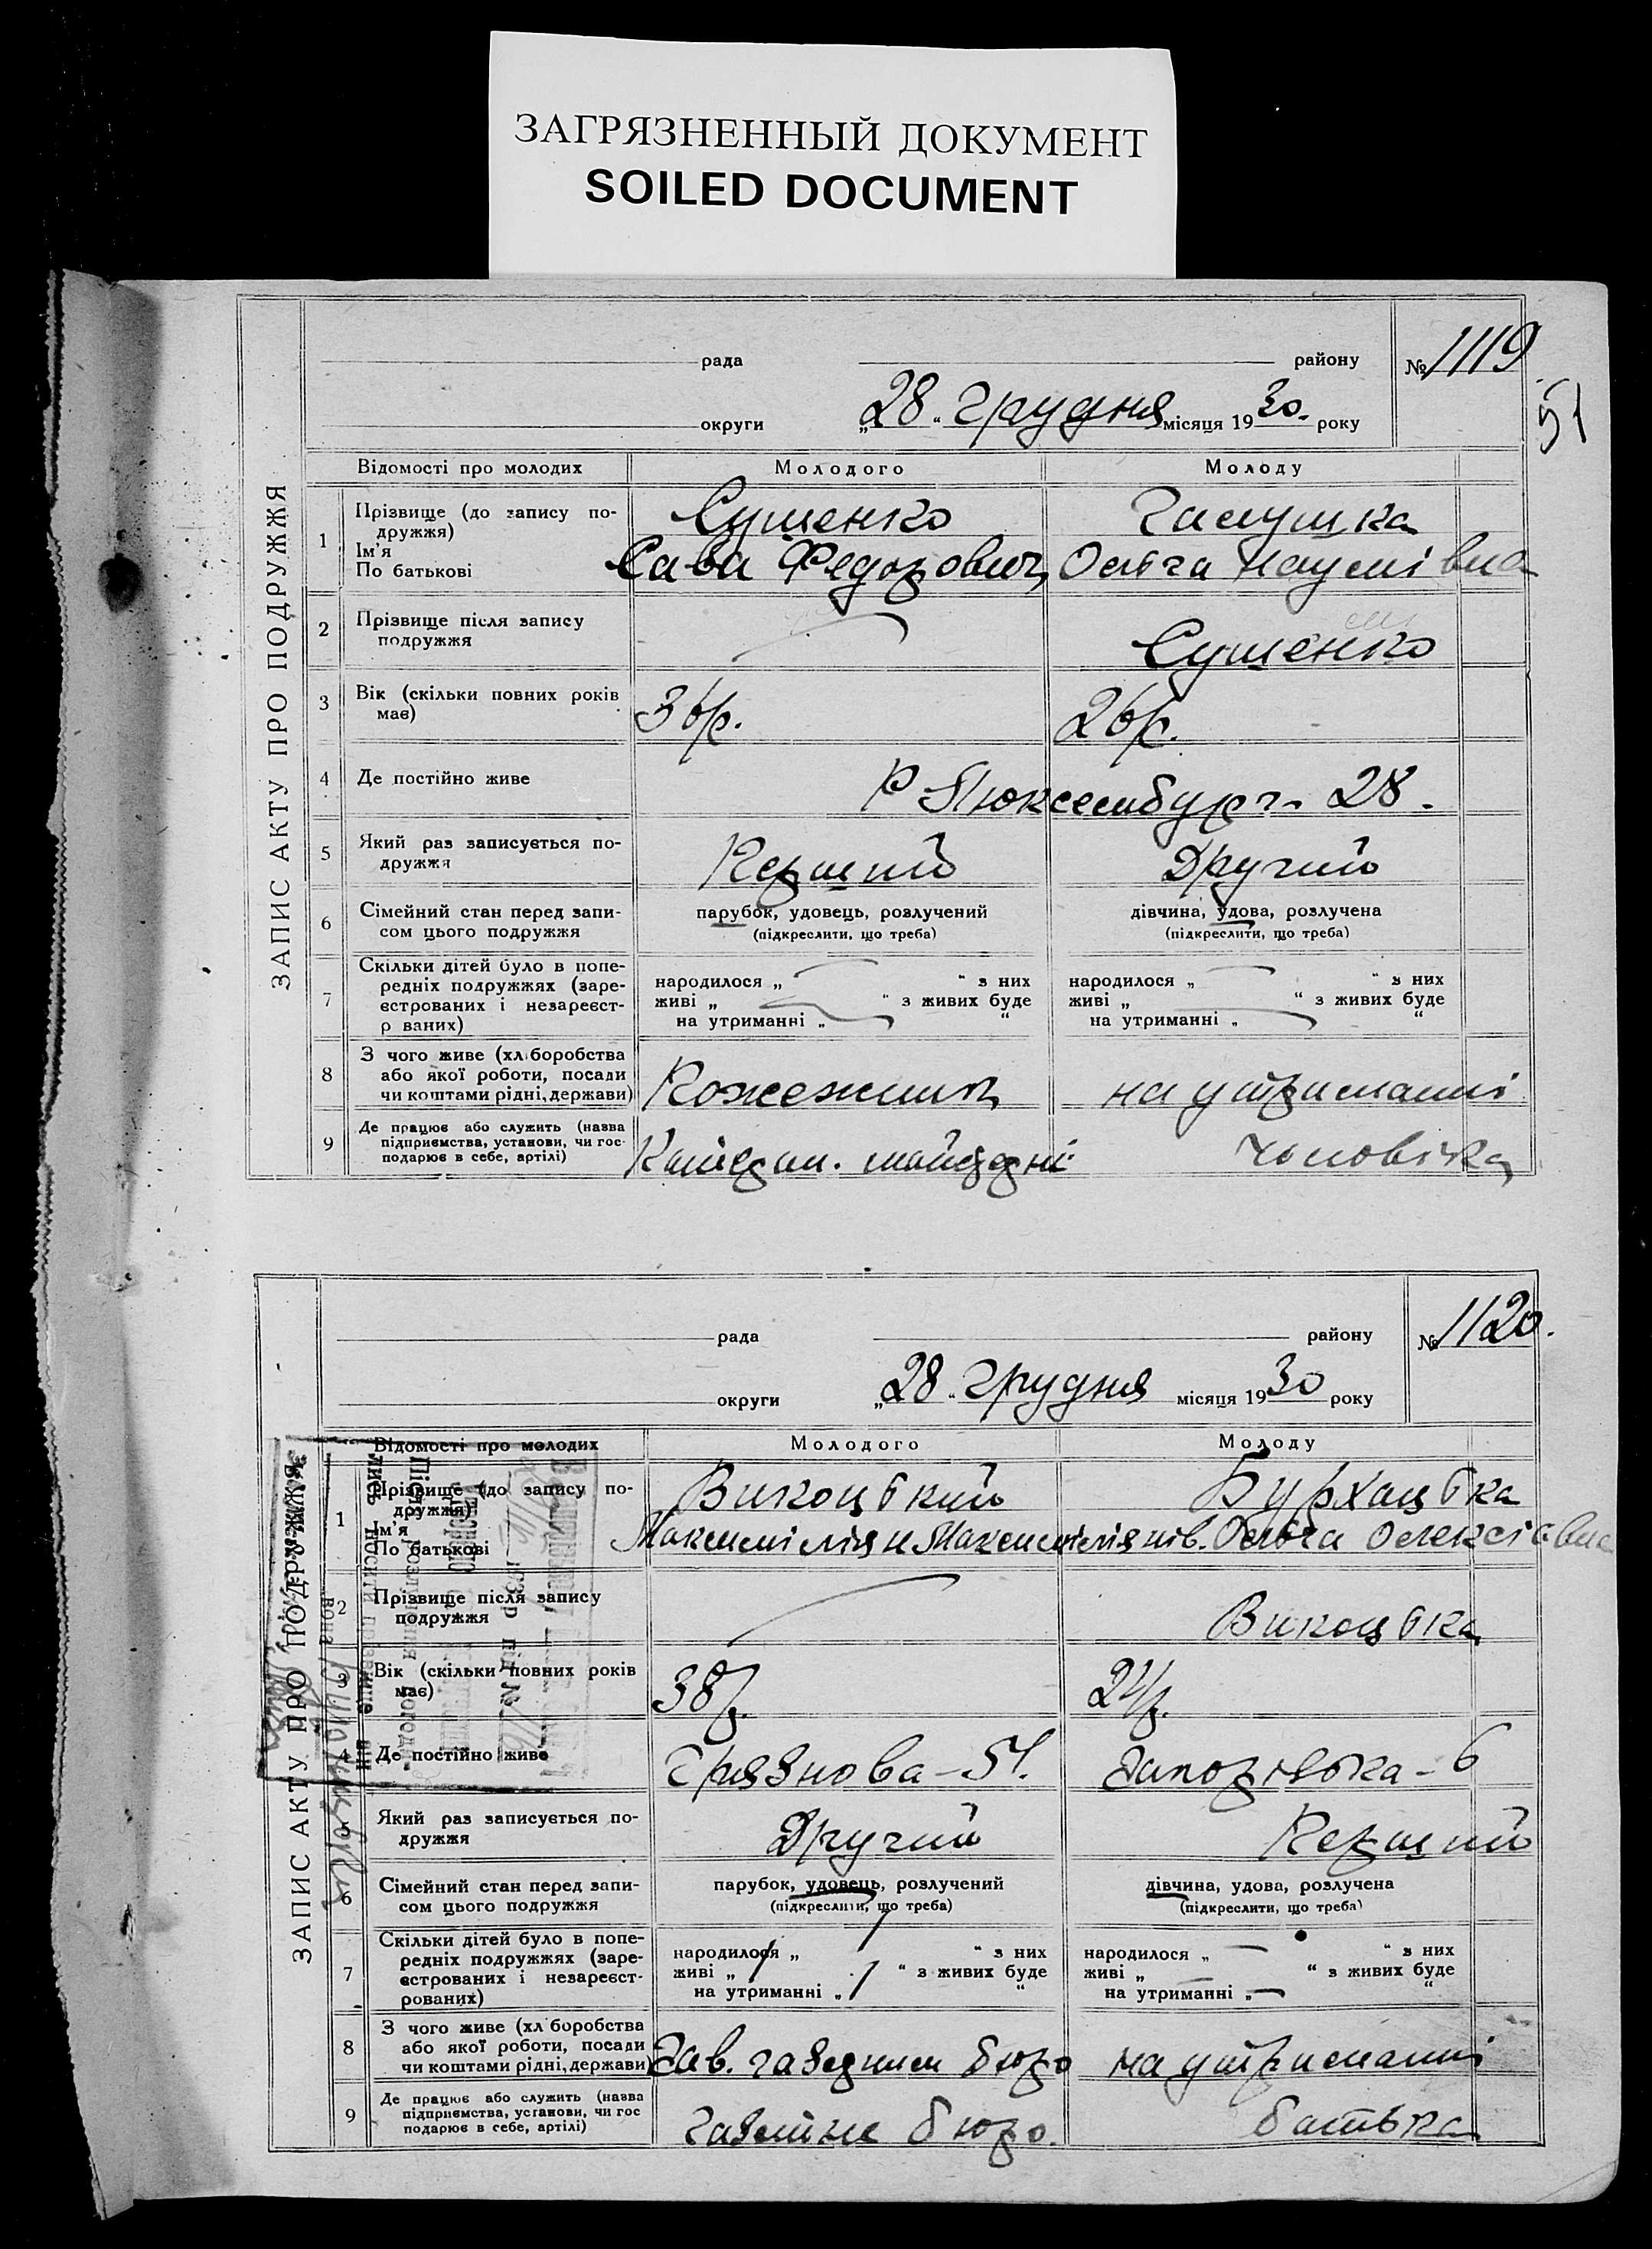 ЗАГРЯЗНЕННЫЙ ДОКУМЕНТ
SOILED DOCUMENT
51
ЗАПИС АКТУ ПРО ПОДРУЖЖЯ
рада району № 1119
округи „28“ Грудня місяця 1930. року
Відомості про молодих Молодого Молоду
1 Прізвище (до запису по- Сушенко Галушка
дружжя)
Ім'я Сава Федорович Ольга Наумівна
По батькові
2 Прізвище після запису
подружжя Сушенко
3 Вік (скільки повних років 36р. 26р.
має)
4 Де постійно живе Р Люксембург 28.
5 Який раз записується по- Перший Другий
дружжя
6 Сімейний стан перед запи- парубок, удовець, розлучений дівчина, удова, розлучена
сом цього подружжя (підкреслити, що треба) (підкреслити, що треба)
7 Скільки дітей було в попе- народилося „ “ з них народилося „ “ з них
редніх подружжях (заре- живі „ “ з живих буде живі „ “ з живих буде
єстрованих і незареєст- на утриманні „ “ на утриманні „ “
р ваних)
8 З чого живе (хл боробства
або якої роботи, посади Кожежник на утриманні
чи коштами рідні, держави)
9 Де працює або служить (назва
підприємства, установи, чи гос- майстерні чоловіка
подарює в себе, артілі)
ЗАПИС АКТУ ПРО ПОДРУЖЖЯ
рада району № 1120.
округи „28“ Грудня місяця 1930 року
Відомості про молодих Молодого Молоду
1 Прізвище (до запису по- Викоцький Бурхацька
дружжя)
Ім'я Максиміліян Максиміліянів. Ольга Олексіївна
По батькові
2 Прізвище після запису
подружжя Викоцька
3 Вік (скільки повних років 38р.
має)
4 Де постійно живе Грязнова - 54. - 6
Який раз записується по- Другий Перший
дружжя
6 Сімейний стан перед запи- парубок, удовець, розлучений дівчина, удова, розлучена
сом цього подружжя (підкреслити, що треба) (підкреслити, що треба)
7 Скільки дітей було в попе- народилося „ 1 “ з них народилося „ — “ з них
редніх подружжях (заре- живі „ 1 “ з живих буде живі „ — “ з живих буде
єстрованих і незареєст- на утриманні „ 1 “ на утриманні „ — “
рованих)
8 З чого живе (хл боробства
або якої роботи, посади Зав. бюро на утриманні
чи коштами рідні, держави)
9 Де працює або служить (назва
підприємства, установи, чи гос бюро. батька
подарює в себе, артілі)